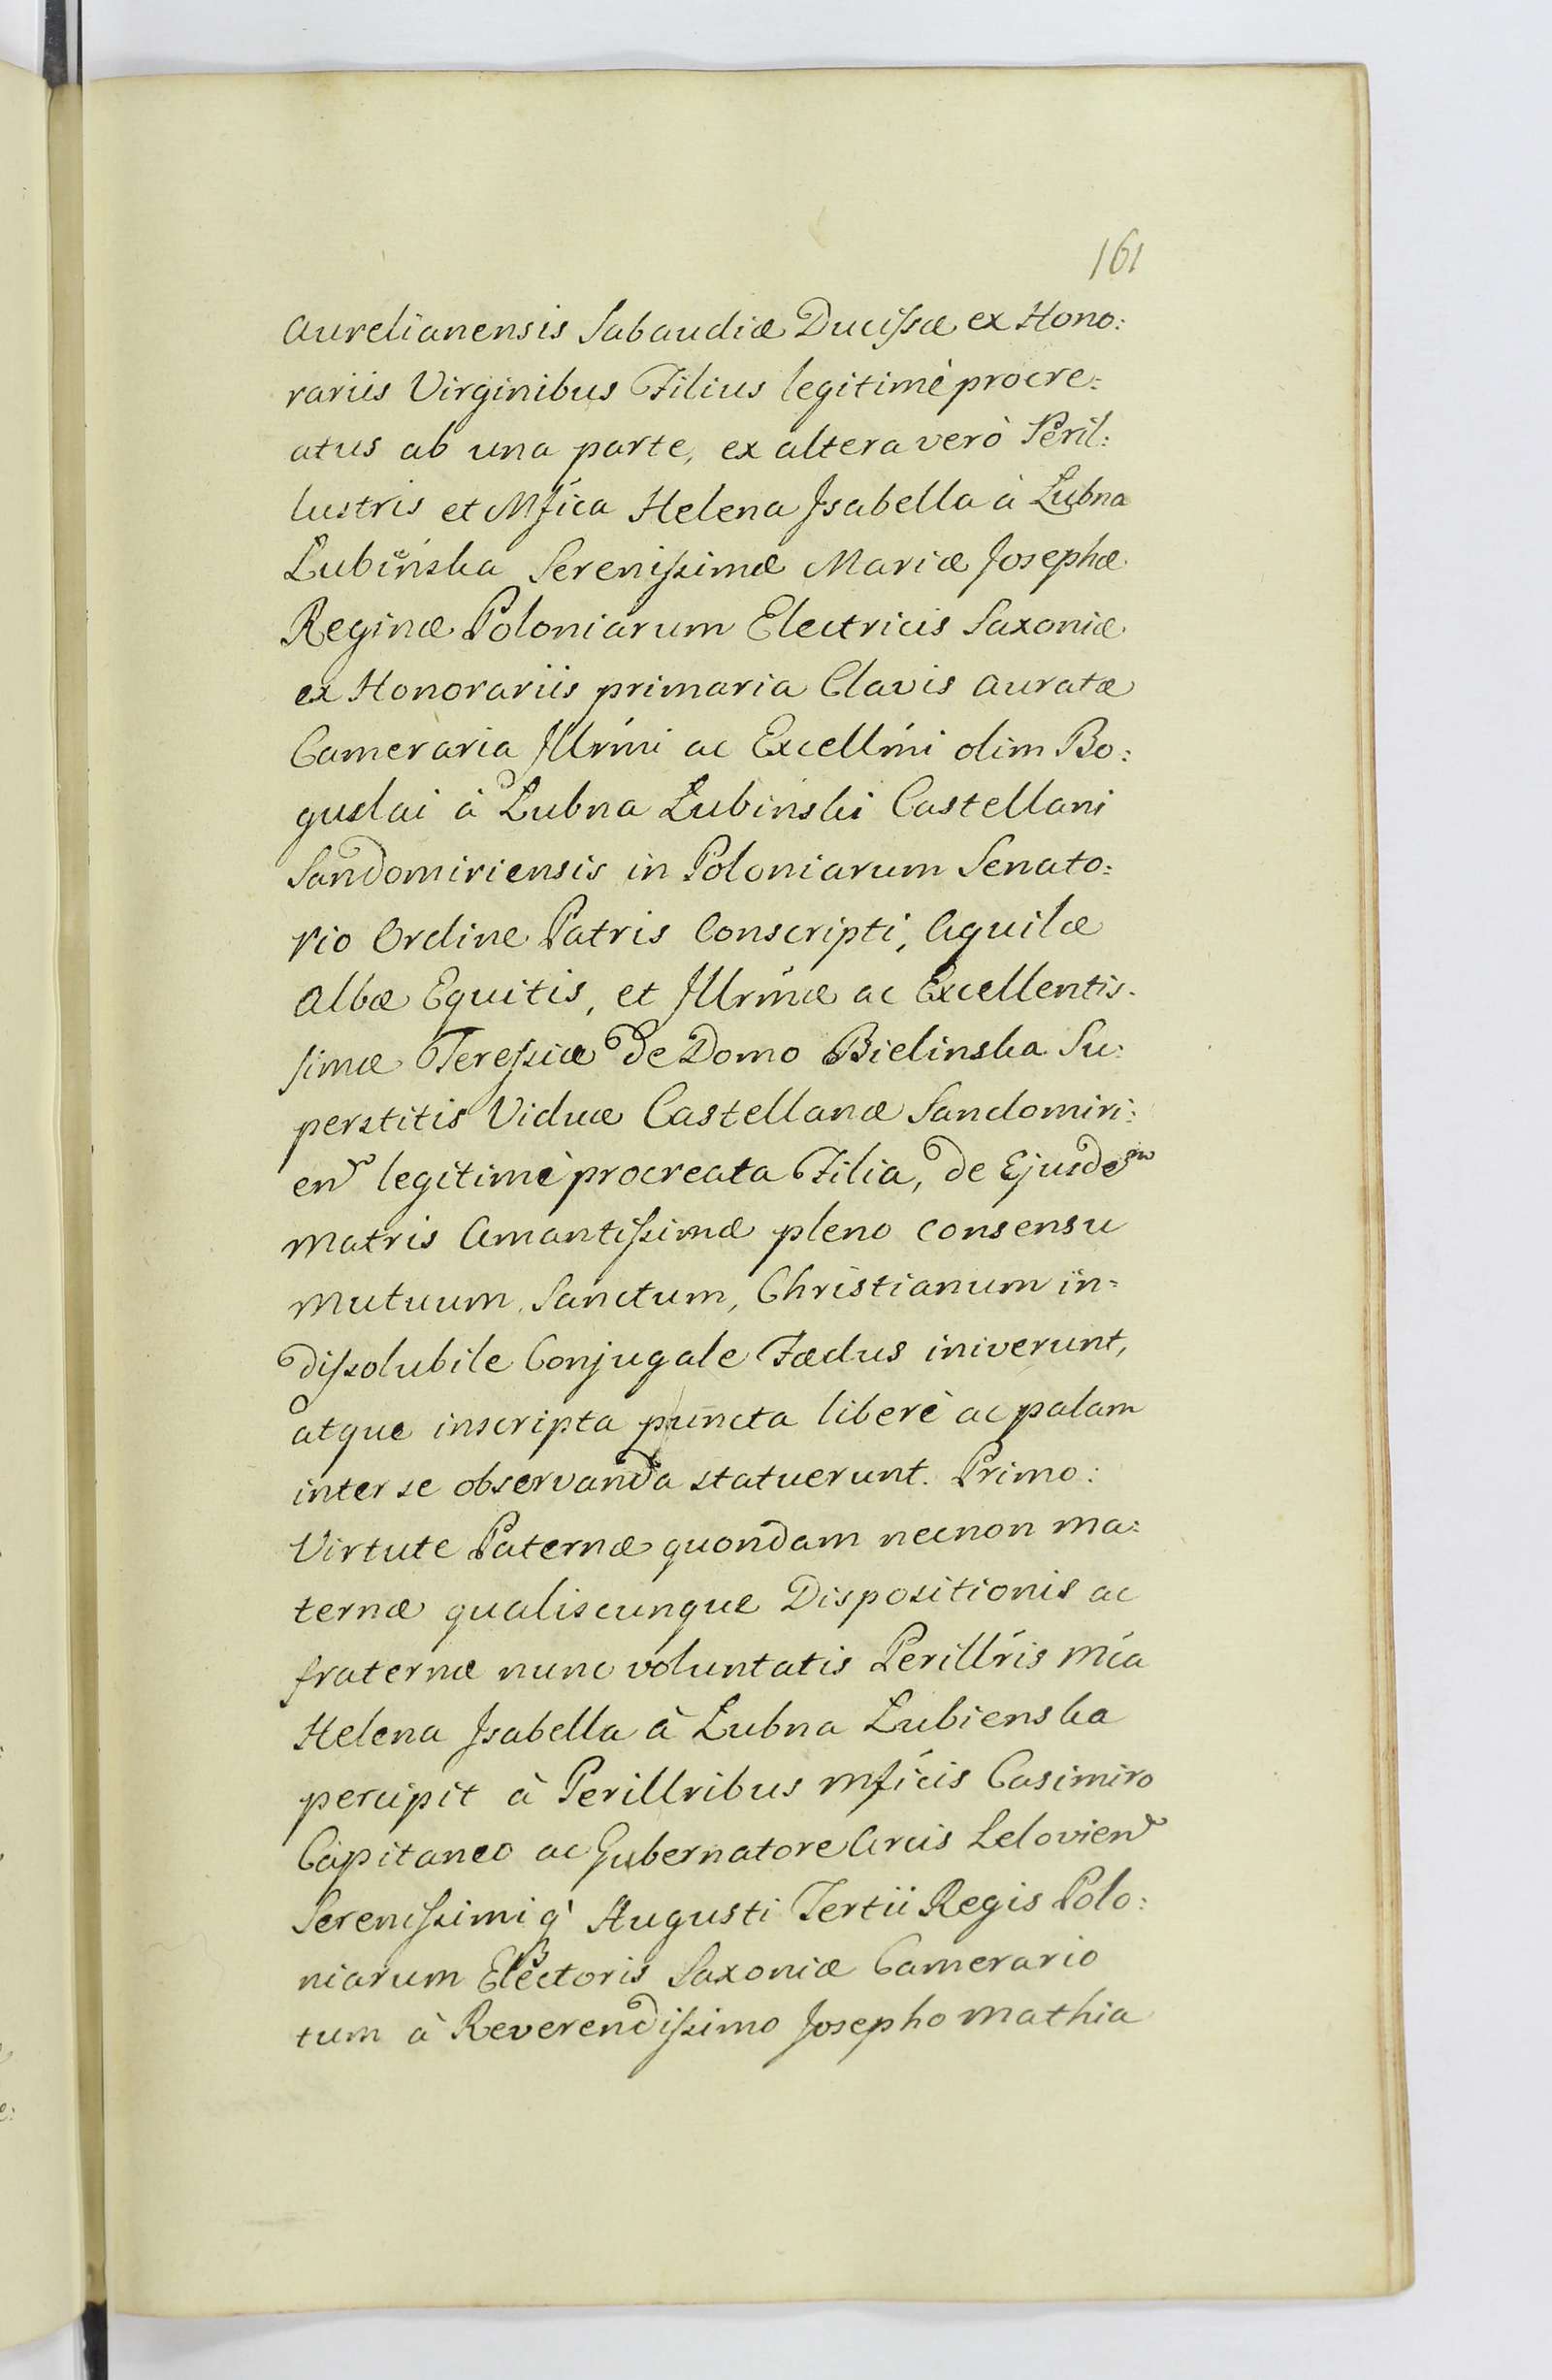 161
Aurelianensis Sabaudiæ Ducissæ ex Hono:
rariis Virginibus Filius legitimè procre:
atus ab una parte, ex altera verò Peril:
lustris et Mfica Helena Isabella à Łubna
Łubieńska Serenissimæ Mariæ Josephæ
Reginæ Poloniarum Electricis Saxoniæ
ex Honorariis primaria Clavis auratæ
Cameraria Illrmi ac Excellmi olim Bo:
guslai à Łubna Łubinski Castellani
Sandomiriensis in Poloniarum Senato:
rio Ordine Patris Conscripti, Aquilæ
Albæ Equitis, et Illrmæ ac Excellentis-
simæ Teressiæ de Domo Bielinska Su:
perstitis Viduæ Castellanæ Sandomiri:
en legitimè procreata Filia, de Ejusdem
Matris Amantissimæ pleno consensu
Mutuum, Sanctum, Christianum in=
dissolubile Conjugale Fædus iniverunt,
atque inscripta puncta liberè ac palam
inter se observanda statuerunt. Primo:
Virtute Paternæ quondam necnon Ma:
ternæ qualiscunque Dispositionis ac
fraternæ nunc voluntatis Perillris Mca
Helena Isabella à Łubna Łubienska
percipit à Perillribus Mficis Casimiro
Capitaneo ac Gubernatore Arcis Lelovien
Serenissimi q' Augusti Tertii Regis Polo:
niarum Electoris Saxoniæ Camerario
tum à Reverendissimo Josepho Mathia